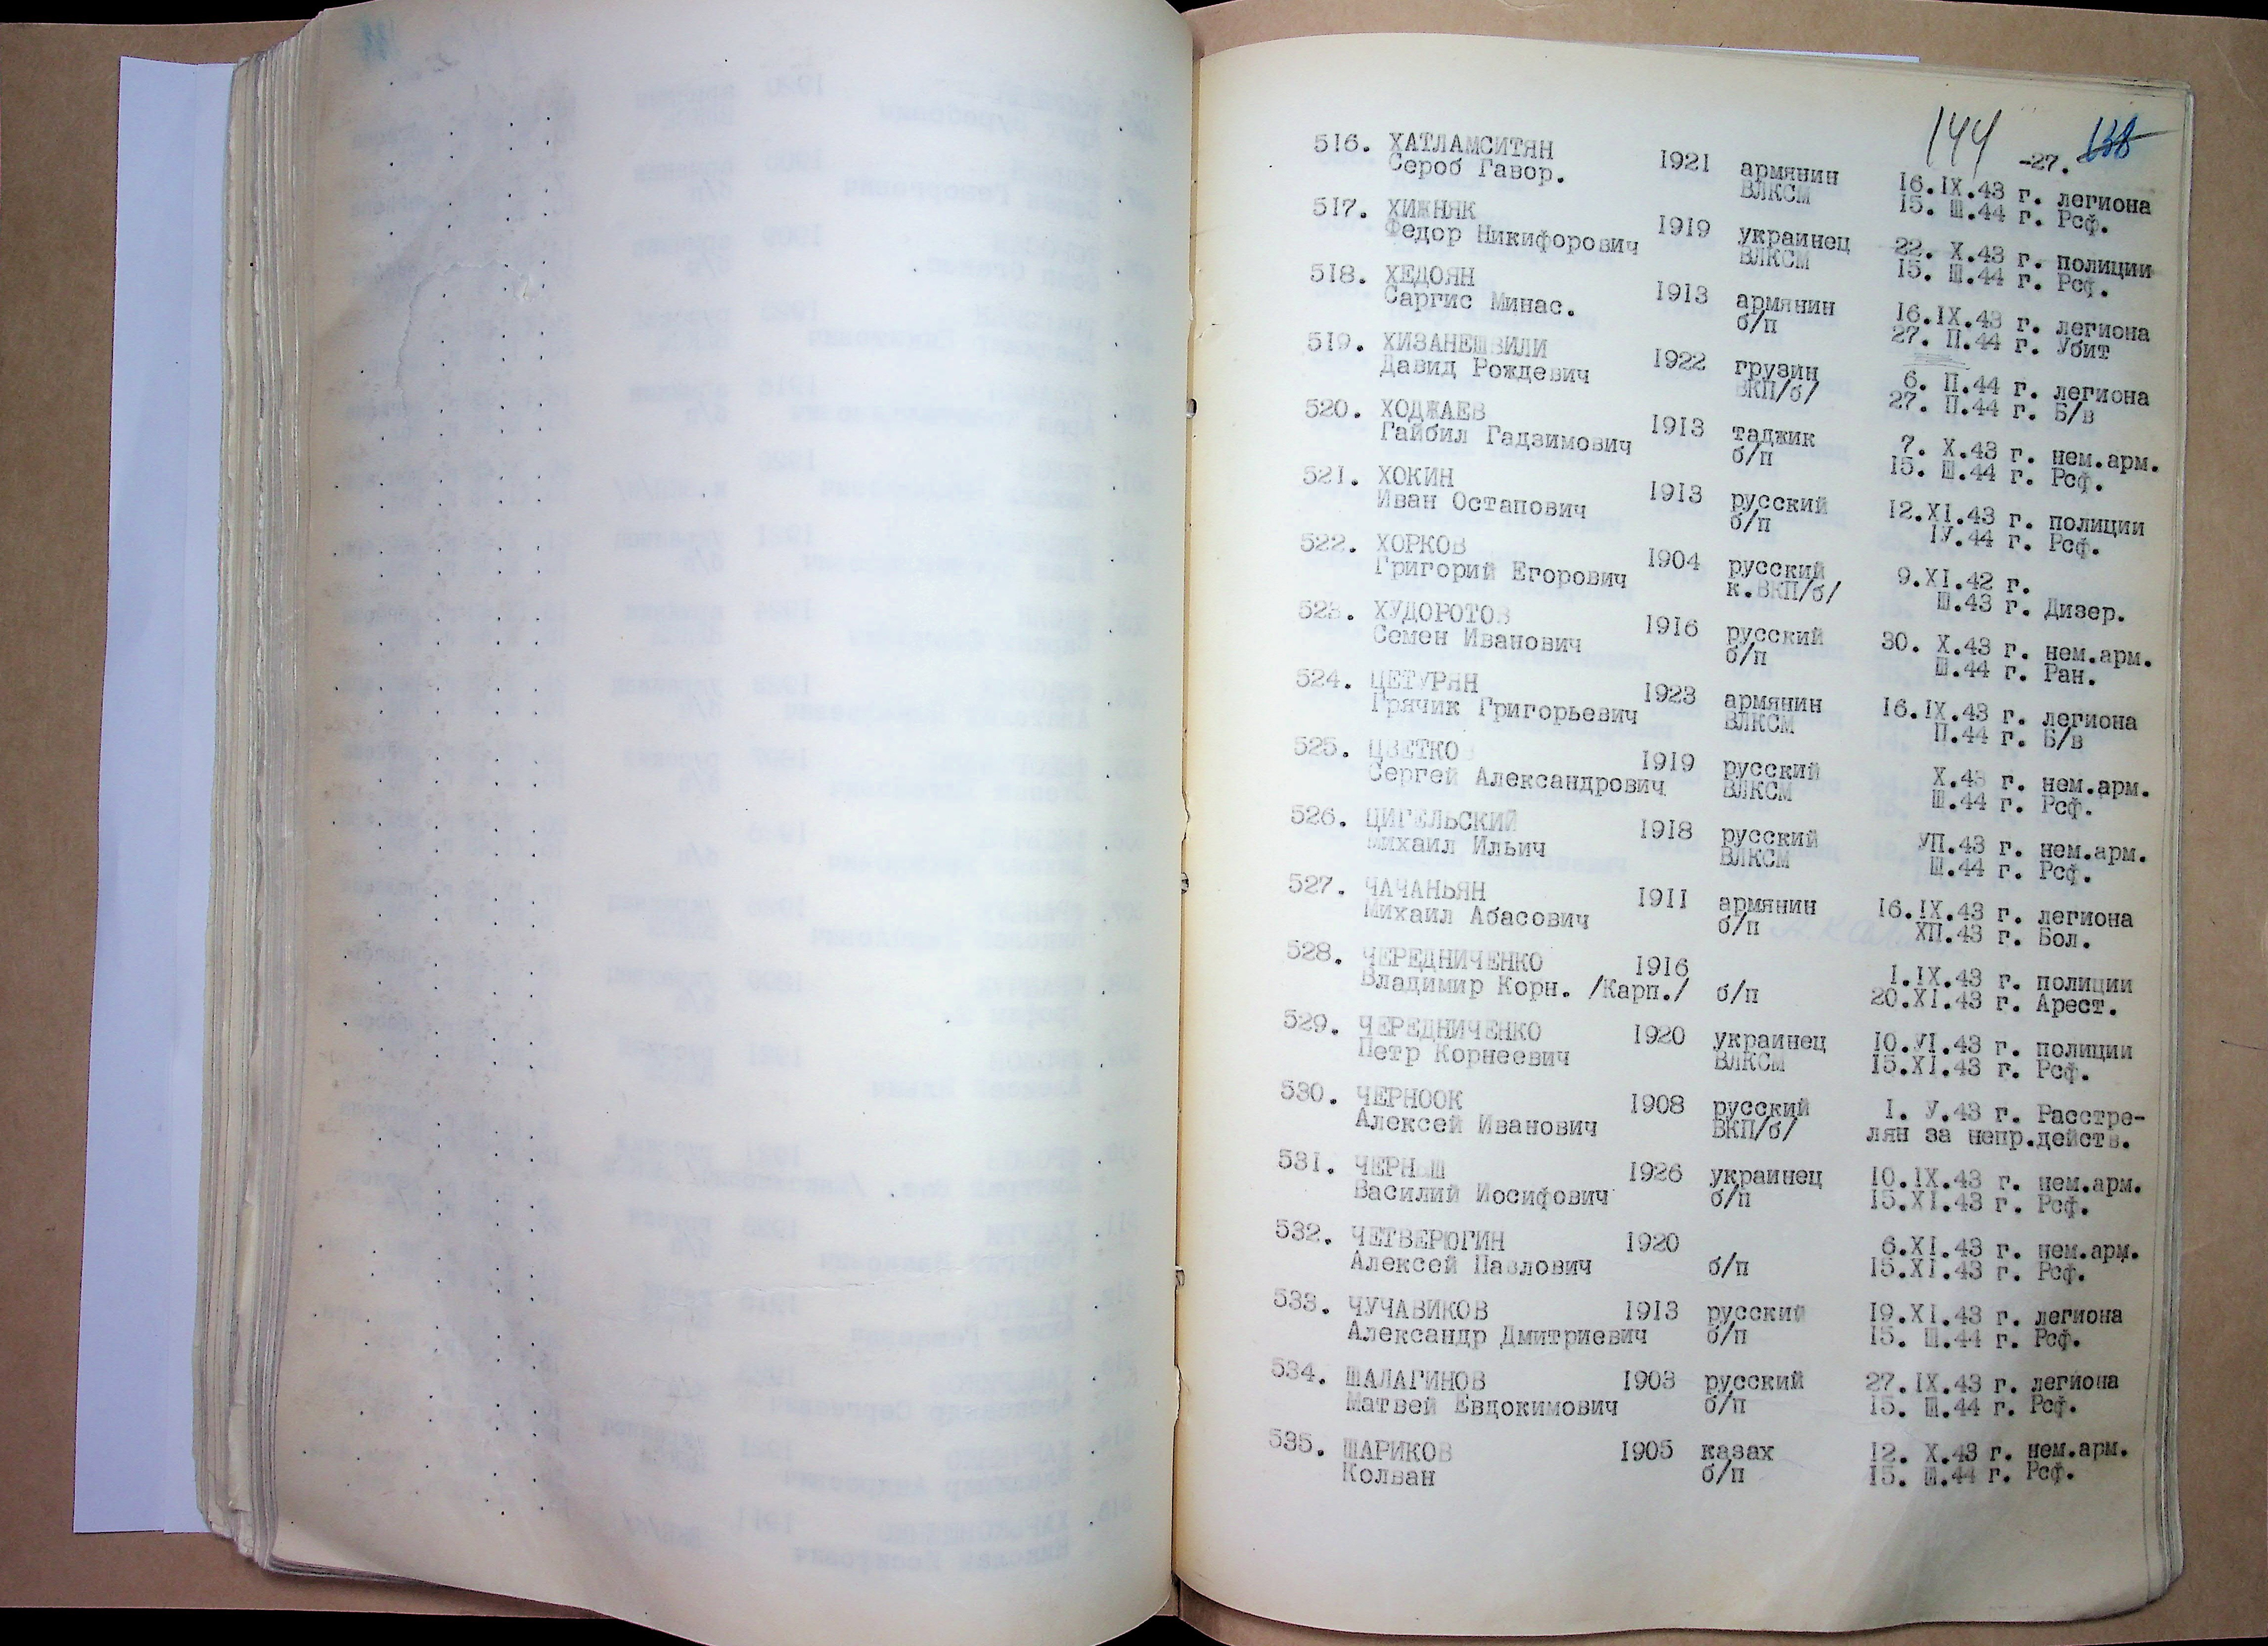 144 -27. 138
516. ХАТЛАМСИТЯН 1921 армянин 16.IX.43 г. легиона
Сероб Гавор. ВЛКСМ 15. Ш.44 г. Рсф.
517. ХИЖНЯК 1919 украинец 22. X.43 г. полиции
Федор Никифорович ВЛКСМ 15. Ш.44 г. Рсф.
518. ХЕДОЯН 1913 армянин 16.IX.43 г. легиона
Саргис Минас. б/п 27. П.44 г. Убит
519. ХИЗАНЕШВИЛИ 1922 грузин 6. П.44 г. легиона
Давид Рождевич ВКП/б/ 27. П.44 г. Б/в
520. ХОДЖАЕВ 1913 таджик 7. X.43 г. нем.арм.
Гайбил Гадзимович б/п 15. Ш.44 г. Рсф.
521. ХОКИН 1913 русский 12.XI.43 г. полиции
Иван Остапович б/п IУ.44 г. Рсф.
522. ХОРКОВ 1904 русский 9.XI.42 г.
Григорий Егорович к.ВКП/б/ Ш.43 г. Дизер.
523. ХУДОРОТОВ 1916 русский 30. X.43 г. нем.арм.
Семен Иванович б/п Ш.44 г. Ран.
524. ЦЕТУРЯН 1923 армянин 16.IX.43 г. легиона
Грячик Григорьевич ВЛКСМ П.44 г. Б/в
525. ЦВЕТКОВ 1919 русский X.43 г. нем.арм.
Сергей Александрович ВЛКСМ Ш.44 г. Рсф.
526. ЦИГЕЛЬСКИЙ 1918 русский УП.43 г. нем.арм.
Михаил Ильич ВЛКСМ Ш.44 г. Рсф.
527. ЧАЧАНЬЯН 1911 армянин 16.IX.43 г. легиона
Михаил Абасович б/п ХП.43 г. Бол.
528. ЧЕРЕДНИЧЕНКО 1916 1.IX.43 г. полиции
Владимир Корн. /Карп./ б/п 20.XI.43 г. Арест.
529. ЧЕРЕДНИЧЕНКО 1920 украинец 10.УI.43 г. полиции
Петр Корнеевич ВЛКСМ 15.XI.43 г. Рсф.
530. ЧЕРНООК 1908 русский 1. У.43 г. Расстре-
Алексей Иванович ВКП/б/ лян за непр.действ.
531. ЧЕРНЫШ 1926 украинец 10.IX.43 г. нем.арм.
Василий Иосифович б/п 15.XI.43 г. Рсф.
532. ЧЕТВЕРЮГИН 1920 6.XI.43 г. нем.арм.
Алексей Павлович б/п 15.XI.43 г. Рсф.
533. ЧУЧАВИКОВ 1913 русский 19.XI.43 г. легиона
Александр Дмитриевич б/п 15. Ш.44 г. Рсф.
534. ШАЛАГИНОВ 1903 русский 27.IX.43 г. легиона
Матвей Евдокимович б/п 15. Ш.44 г. Рсф.
535. ШАРИКОВ 1905 казах 12. X.43 г. нем.арм.
Колван б/п 15. Ш.44 г. Рсф.